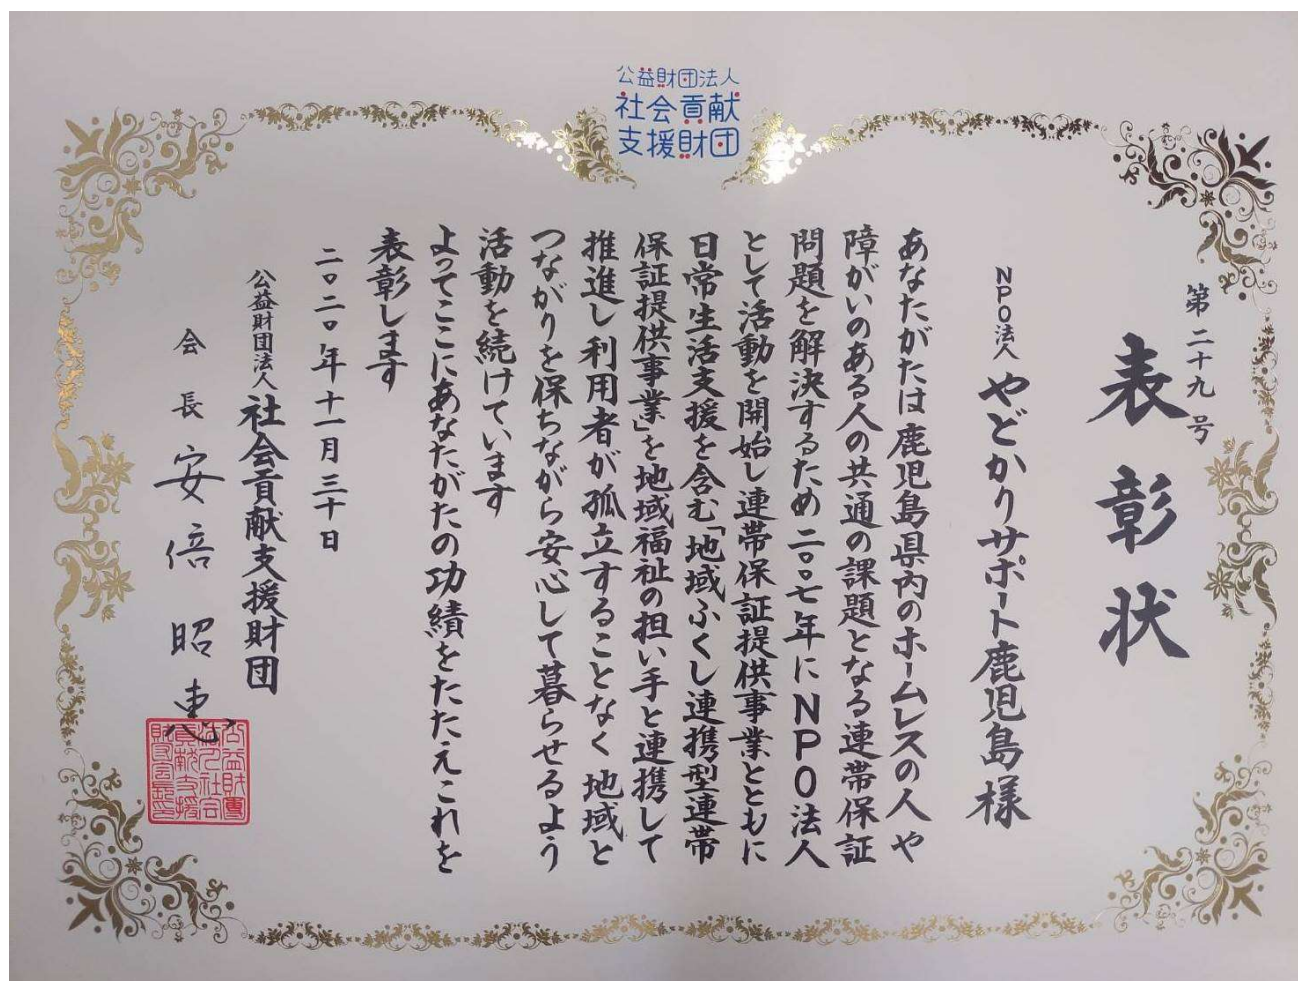 公益財団法人
社会貢献
支援財団
第二十九号
表彰状
NPO法人 やどかりサポート鹿児島 様
あなたがたは鹿児島県内のホームレスの人や
障がいのある人の共通の課題となる連帯保証
問題を解決するため二〇〇七年にNPO法人
として活動を開始し連帯保証提供事業とともに
日常生活支援を含む「地域ふくし連携型連帯
保証提供事業」を地域福祉の担い手と連携して
推進し利用者が孤立することなく地域と
つながりを保ちながら安心して暮らせるよう
活動を続けています
よってここにあなたがたの功績をたたえこれを
表彰します
二〇二〇年十一月三十日
公益財団法人 社会貢献支援財団
会長 安倍昭恵